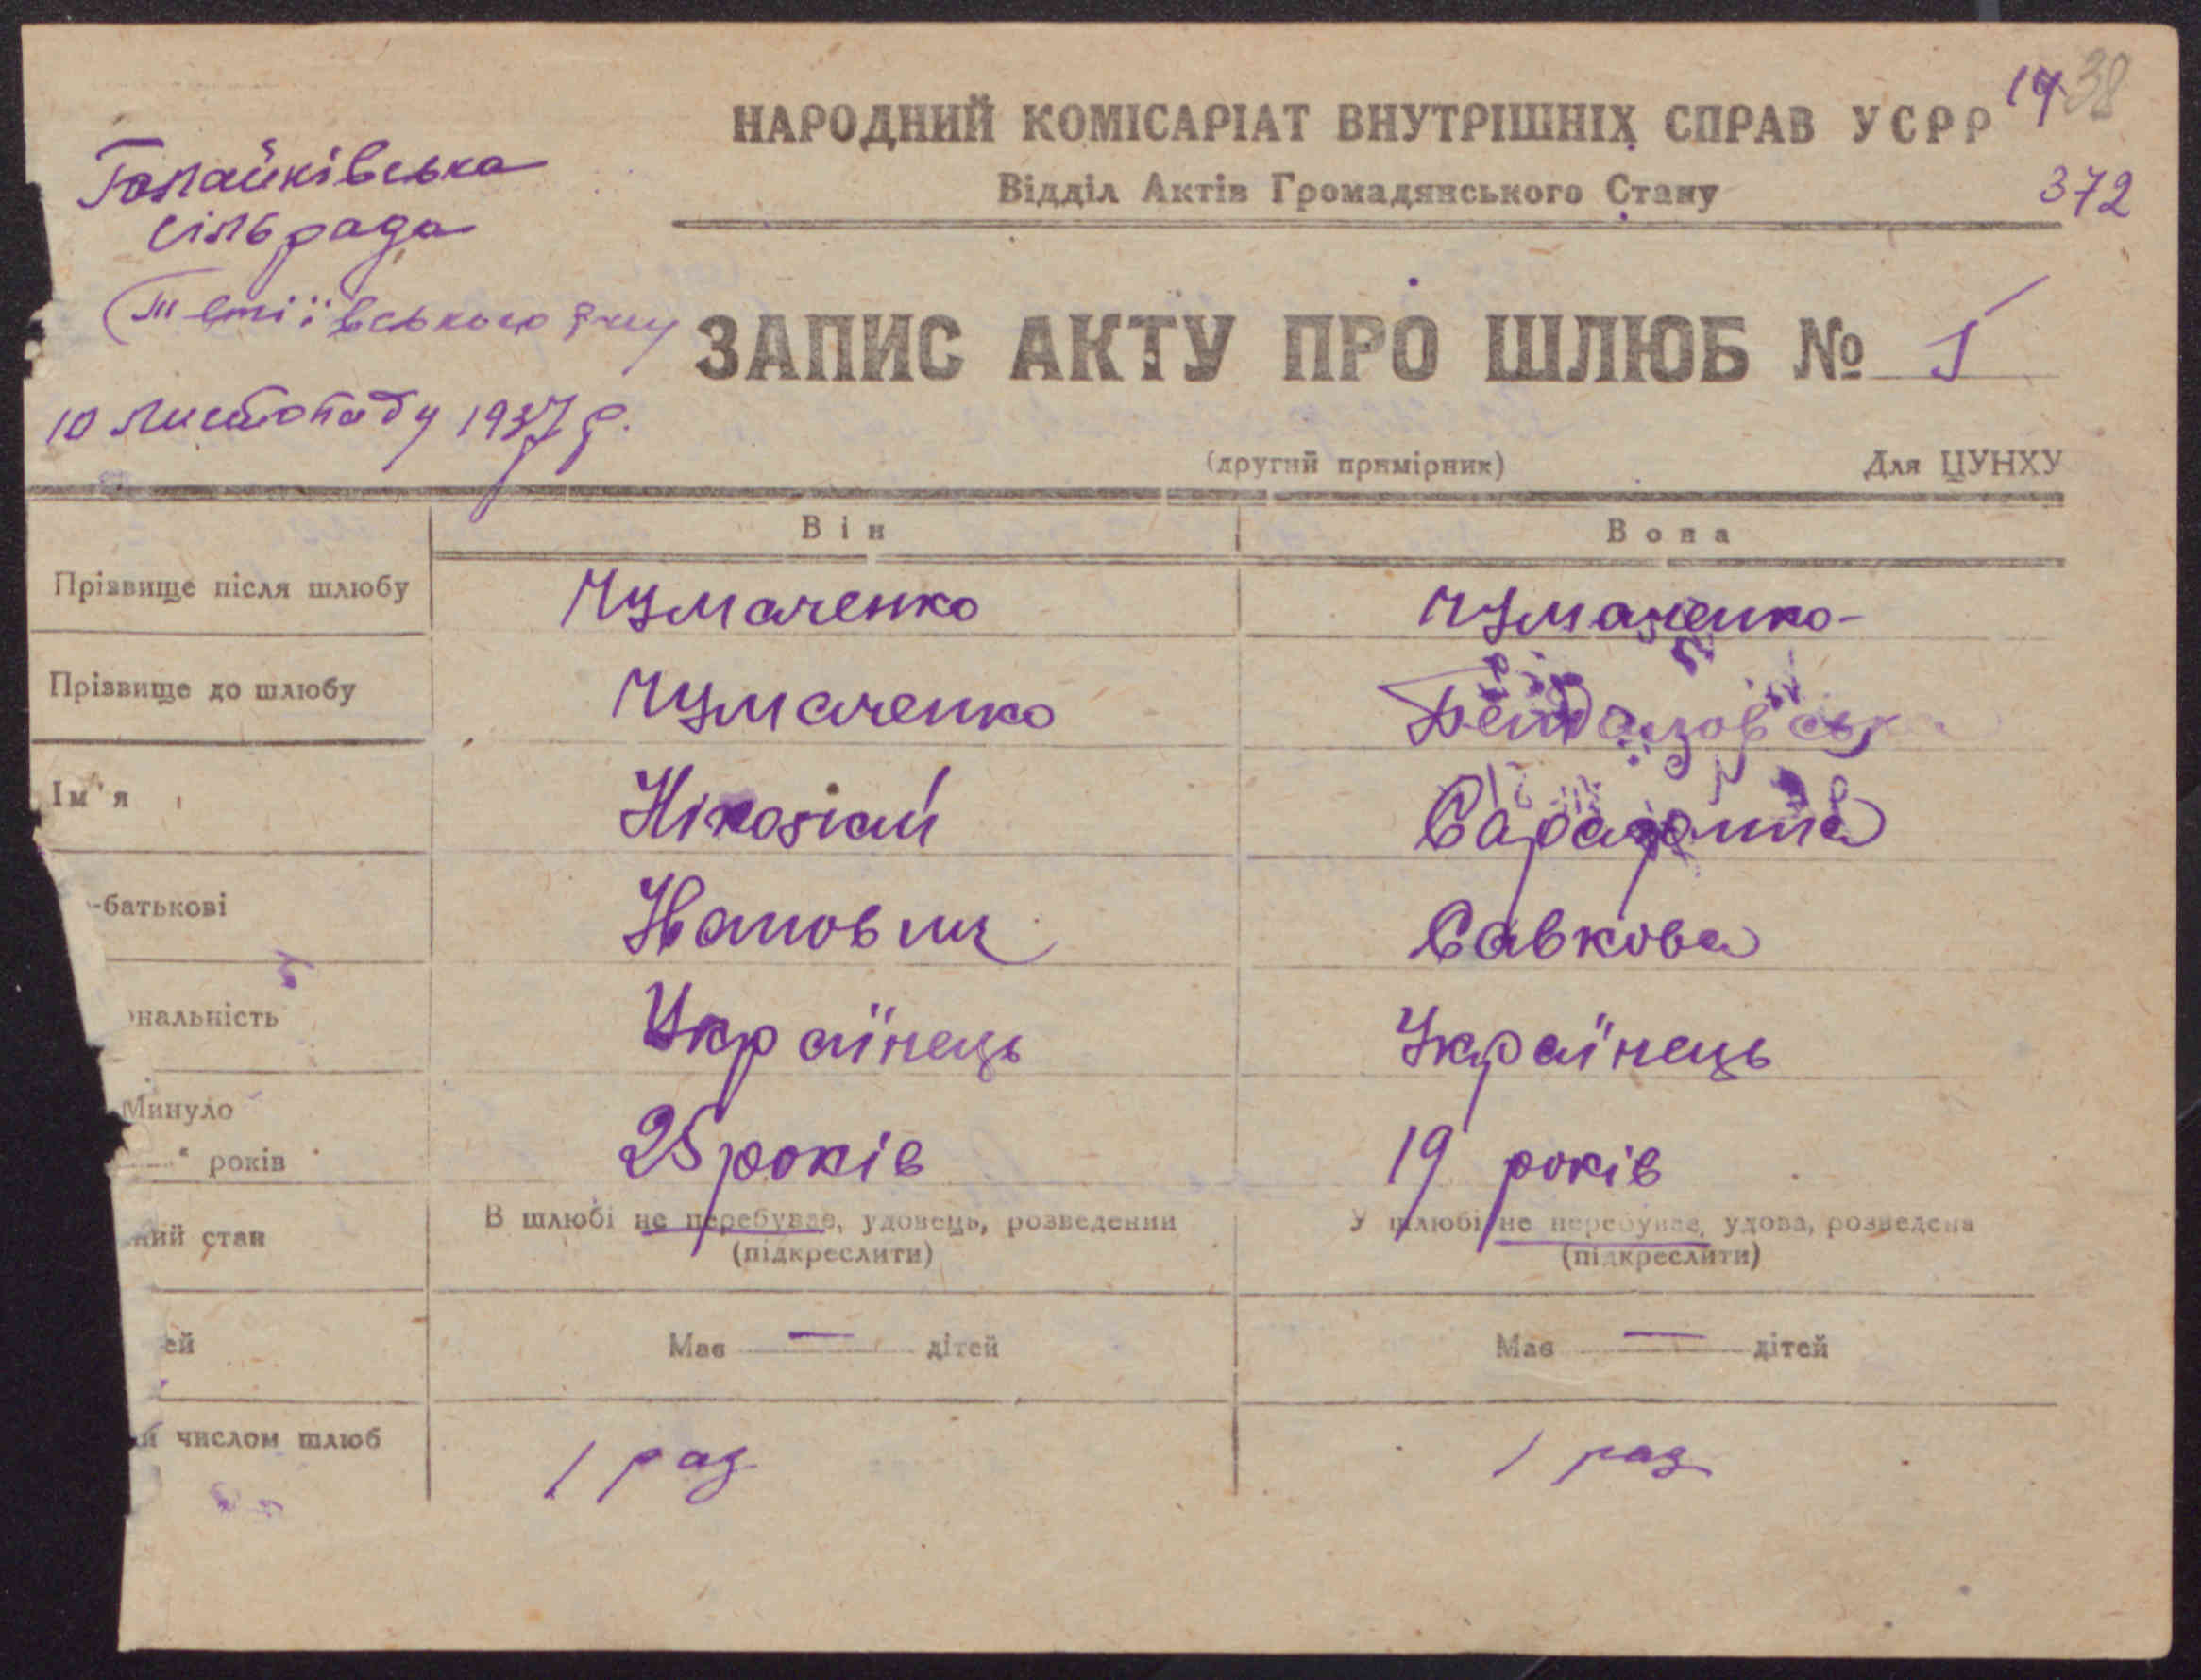 НАРОДНИЙ КОМІСАРІАТ ВНУТРІШНІХ СПРАВ УСРР
14 38
Відділ Актів Громадянського Стану
372
Галайківська
сільрада
Тетіївського р-ну
10 листопаду 1937 р.
ЗАПИС АКТУ ПРО ШЛЮБ № 1
(другий примірник) Для ЦУНХУ
Він Вона
Прізвище після шлюбу Чумаченко Чумаченко
Прізвище до шлюбу Чумаченко
Ім'я Ніколай
-батькові Савкова
ональність Українець Українець
Минуло
" років 25 років 19 років
ний стан В шлюбі не перебував, удовець, розведений У шлюбі не перебував, удова, розведена
(підкреслити) (підкреслити)
ей Має — дітей Має — дітей
и числом шлюб 1 раз 1 раз